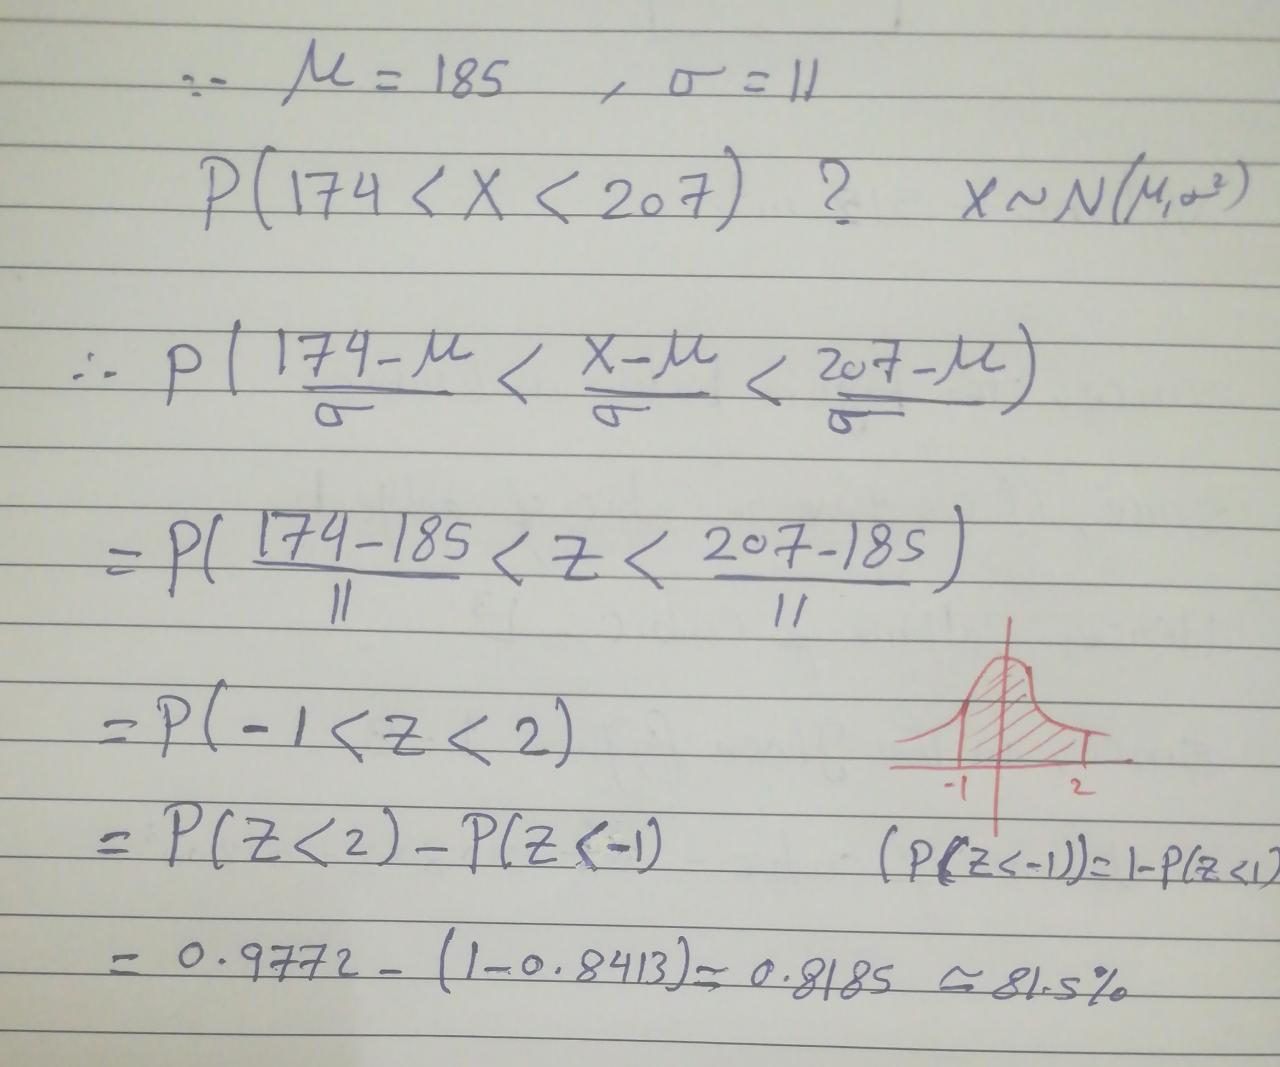 ∵ μ = 185 , σ = 11
P(174 < X < 207) ? X ~ N(μ, σ²)
∴ P( (174 - μ)/σ < (X - μ)/σ < (207 - μ)/σ )
= P( (174 - 185)/11 < Z < (207 - 185)/11 )
= P(-1 < Z < 2)
-1 2
= P(Z < 2) - P(Z < -1) (P(Z < -1)) = 1 - P(Z < 1)
= 0.9772 - (1 - 0.8413) = 0.8185 ≃ 81.5%